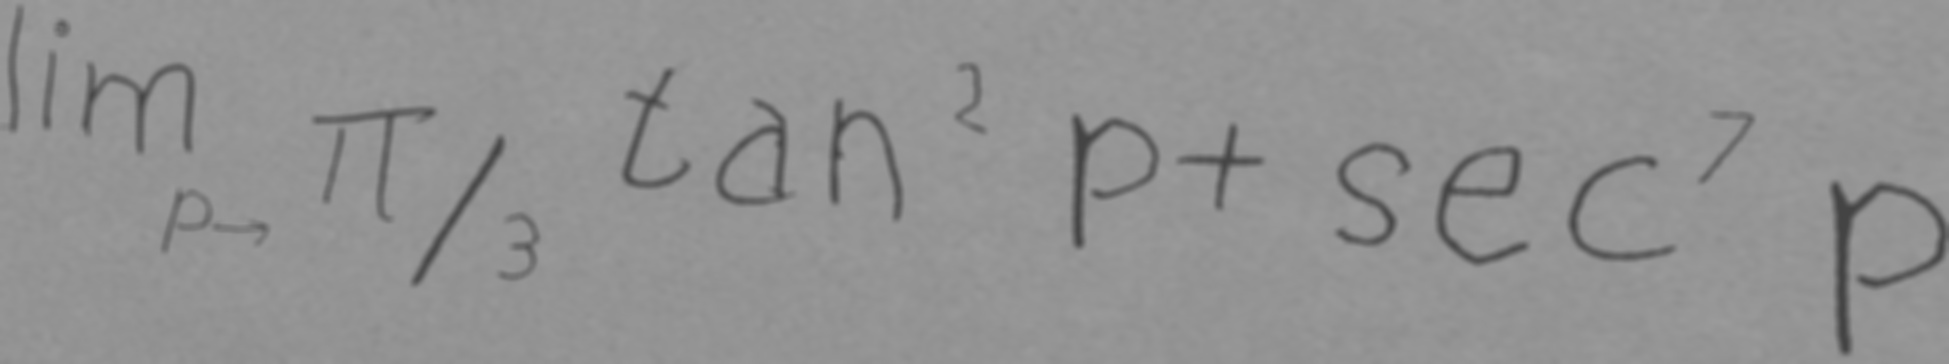 lim p→ π/3 tan² p + sec⁷ p